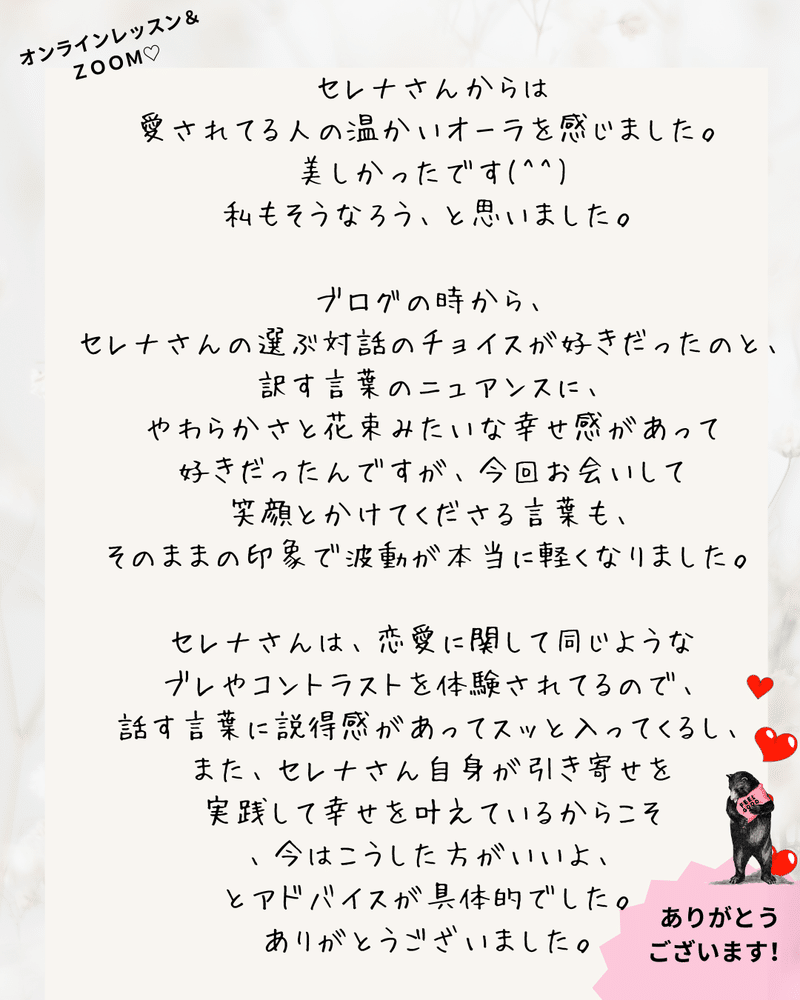 オンラインレッスン＆
ZOOM♡
セレナさんからは
愛されてる人の温かいオーラを感じました。
美しかったです(^^)
私もそうなろう、と思いました。
ブログの時から、
セレナさんの選ぶ対話のチョイスが好きだったのと、
訳す言葉のニュアンスに、
やわらかさと花束みたいな幸せ感があって
好きだったんですが、今回お会いして
笑顔とかけてくださる言葉も、
そのままの印象で波動が本当に軽くなりました。
セレナさんは、恋愛に関して同じような
ブレやコントラストを体験されてるので、
話す言葉に説得感があってスッと入ってくるし、
また、セレナさん自身が引き寄せを
実践して幸せを叶えているからこそ
、今はこうした方がいいよ、
とアドバイスが具体的でした。
ありがとうございました。
FEEL
GOOD
ありがとう
ございます!